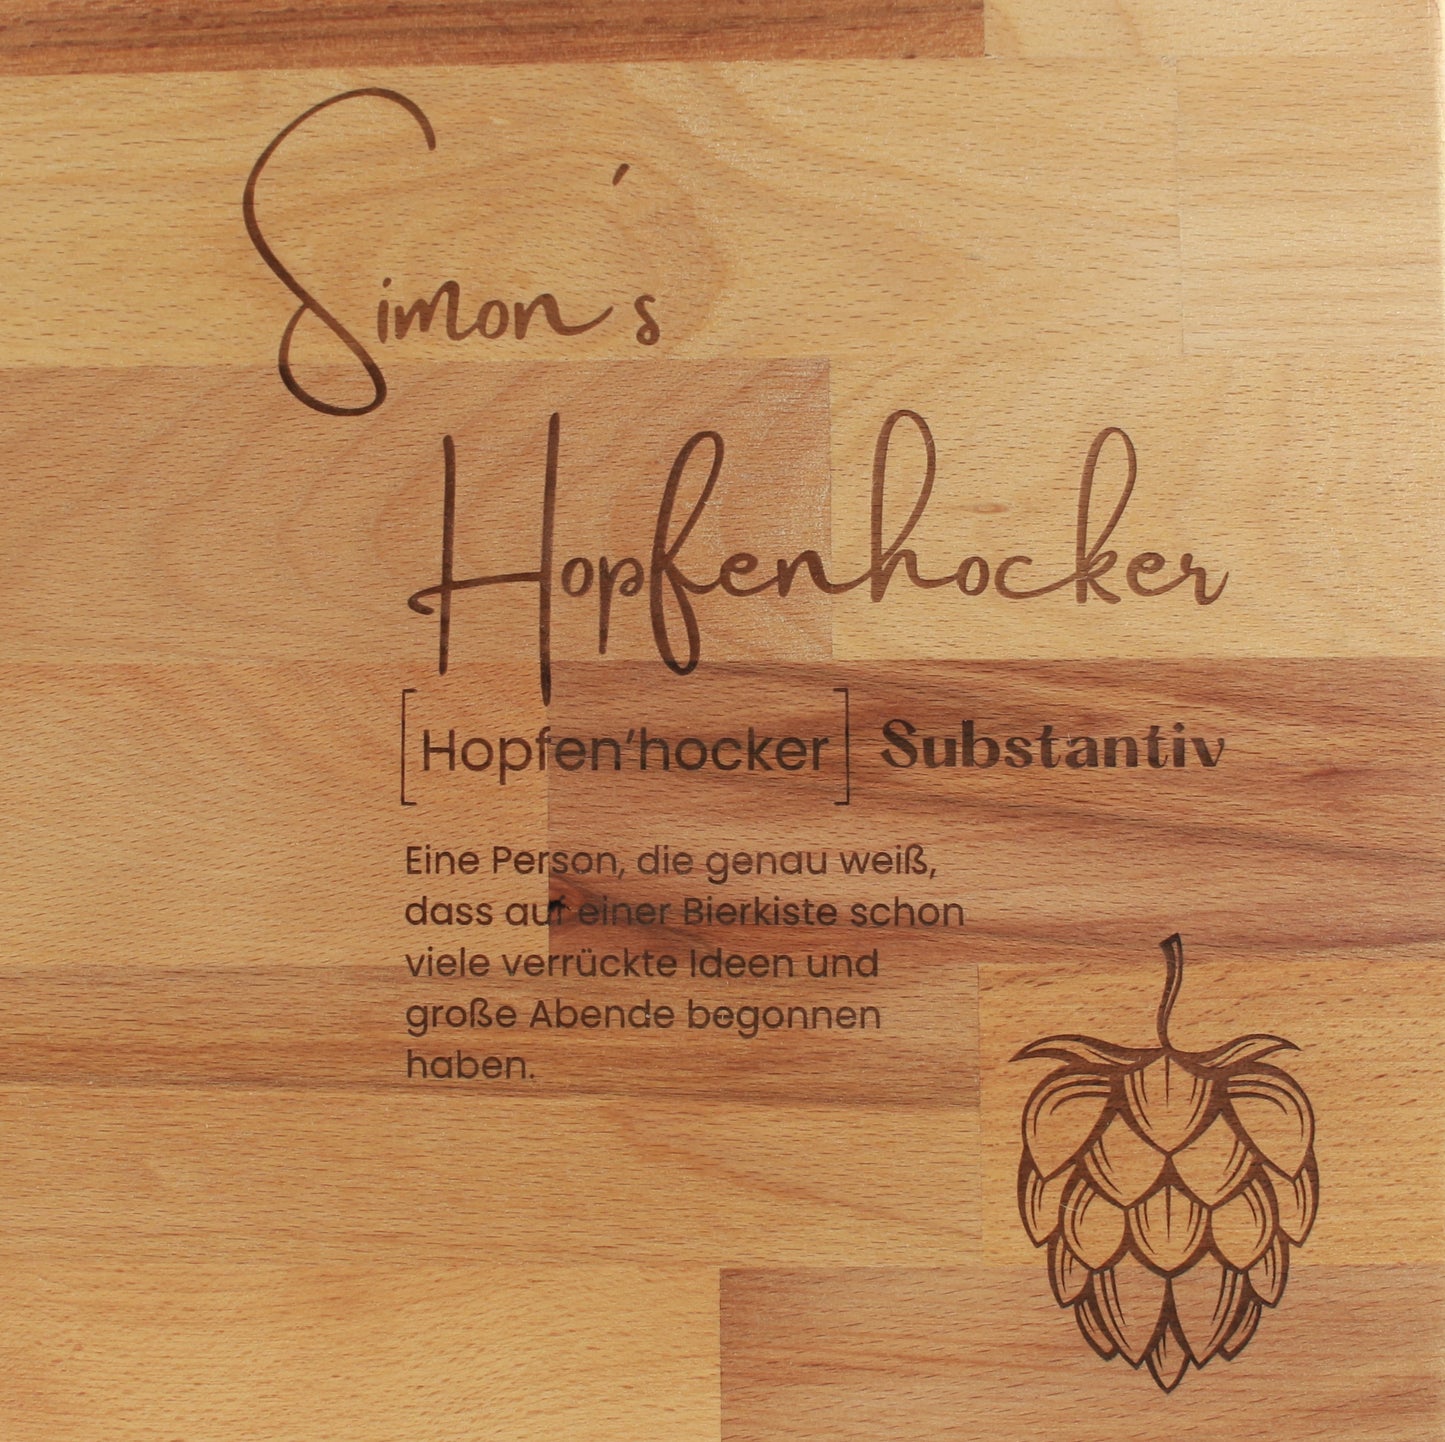 Simon's
Hopfenhocker
[Hopfen'hocker] Substantiv
Eine Person, die genau weiß,
dass auf einer Bierkiste schon
viele verrückte Ideen und
große Abende begonnen
haben.